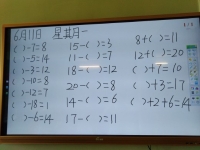 6月11日 星期一
( )-7=8 15-( )=3 8+( )=11
( )-5=14 11-( )=7 12+( )=20
( )-3=12 18-( )=12 ( )+7=10
( )-10=8 20-( )=8 ( )+3=17
( )-12=7 14-( )=6 ( )+2+6=14
( )-18=1 17-( )=11
( )-6=14